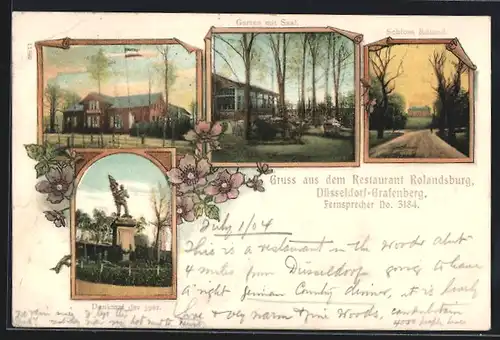 Garten mit Saal.
Gruss aus dem Restaurant Rolandsburg,
Düsseldorf-Grafenberg.
Fernsprecher No. 3184.
Denkmal der 39er.
July 1/04
This is a restaurant in the woods abt
4 miles from Düsseldorf going to have
a right german Country dinner, it is lively
here & very warm & fine woods,
4000 people here